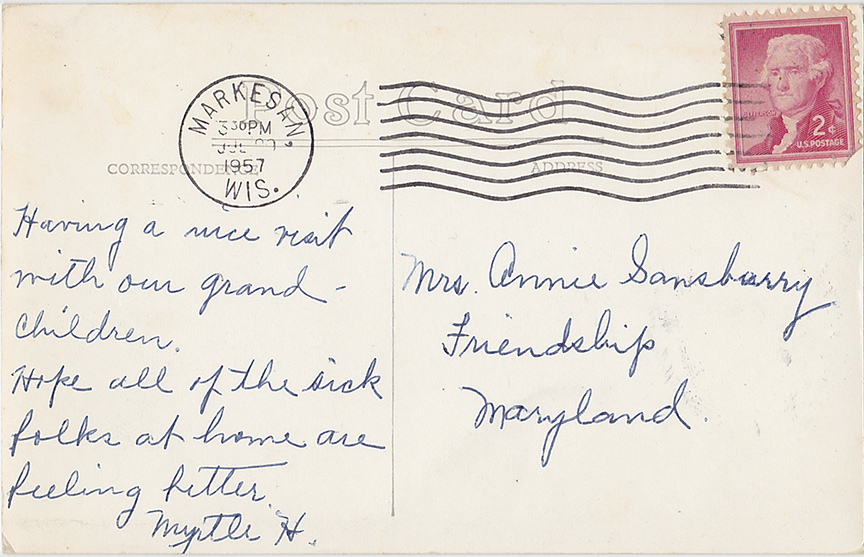 Post Card
MARKESAN,
3 30 PM
JUL
1957
WIS.
JEFFERSON
2¢
U.S. POSTAGE
CORRESPONDENCE
ADDRESS
Having a nice visit
with our grand-
children.
Hope all of the sick
folks at home are
feeling better.
Myrtle H.
Mrs. Annie Sansburry
Friendship
Maryland.